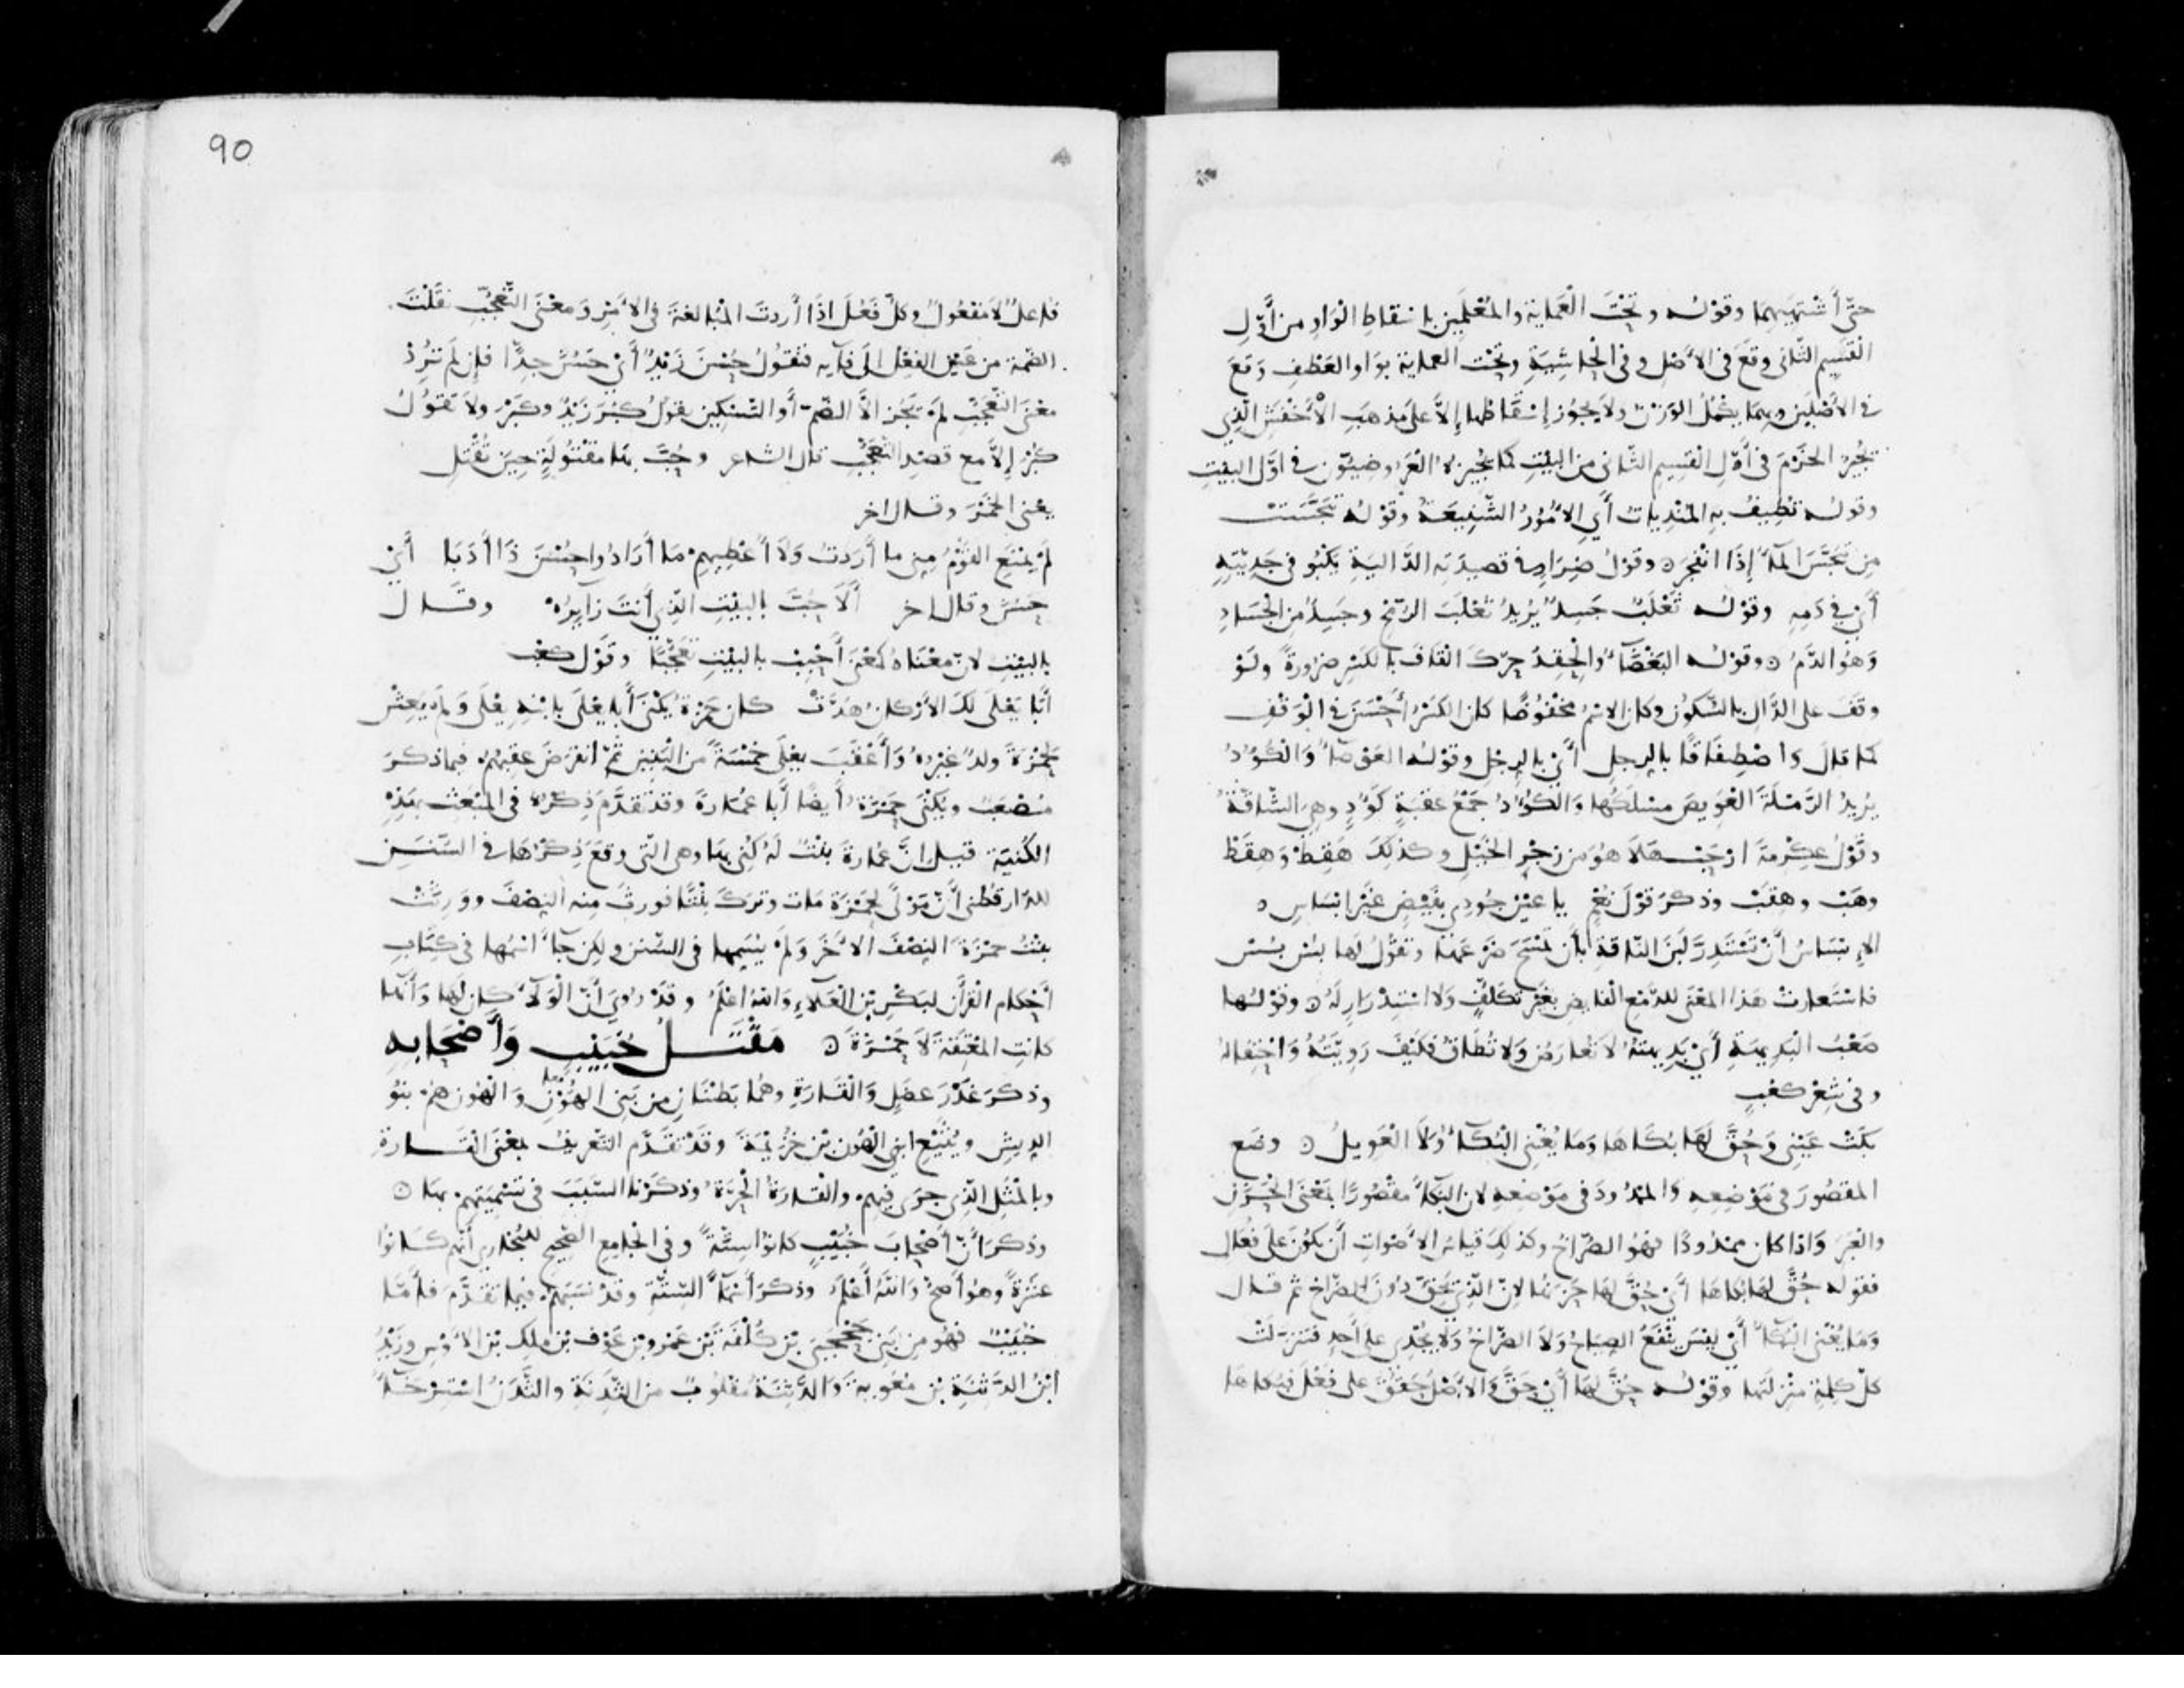 حتَّى أَشْتَهِيَهما وقَوْلُه وتَحْتَ الْعَماية والمُعْلِمِين بإسْقاطِ الوَاوِ من أَوَّلِ
القَسِيمِ الثّانى وقَعَ فى الأَصْلِ وفى الحاشِيَةِ وتَحْت العماية بوَاو العَطْفِ وَقَعَ
فى الأَصْلَيْنِ وبِهما يكْمُلُ الوَزْنُ ولا يجُوز إسْقَاطُها إلاَّ على مَذهَبِ الأَخْفَشِ الّذِى
يُجيزُ الخَرْمَ فى أَوّلِ القَسِيمِ الثّانى من البَيْتِ كما يُجيزُهُ العَرُوضِيّون فى اوّل البيْتِ
وقولُه تُطِيفُ بِهِ المُنْدِيات أَىِ الأُمُورُ الشَّنِيعَةُ وقَوْلُه تَبَجَّسَتْ
مِن تَبَجَّسَ الماءُ إذَا انْفَجَرَ وقوْلُ ضِرَارٍ فى قصِيدَتِهِ الدَّاليةِ يَكْبُو فى جَدِيَّتِهِ
أَىْ فى دَمِهِ وقوْلُه ثَعْلَبٌ جَسِدٌ يُرِيدُ ثَعْلَبَ الرُّمْحِ وجَسِدٌ مِن الجِسَادِ
وَهُو الدَّمُ وقوْلُه البَغْضَاءُ والحِقِدُ حرّكَ القَاف بالكَسْرِ ضَرُورةً ولَوْ
وقَفَ على الدَّالِ بالسُّكونِ وكان الاسْمُ مخْفُوضًا كان الكَسْرُ أَحْسَنَ فى الوَقْفِ
كما قالَ وَاصْطِفَاقًا بالرِجِل أَىْ بالرِجْلِ وقوْلُه العَوْصَاءُ وَالكُؤُدُ
يُرِيدُ الرَّمْلَةَ الْعَوِيصَ مَسْلَكُها وَالكُؤُدُ جَمْعُ عقَبَةٍ كَؤُدٍ وهِىَ الشّاقَّةُ
وقَوْلُ عِكْرِمةَ ارْحَبْ هَلا هُوَ مِن زجْرِ الخَيْلِ وكذلِكَ هَقِطْ وَهِقَطْ
وهَبْ وهِقَبْ وذكرَ قوْلَ نُعْمٍ يا عيْنِ جُودِى بفَيْضٍ غَيْرِ ابْسَاسِ
الإِبْسَاسُ أَنْ تَسْتَدِرَّ لَبَنَ النّاقةِ بأن تَمْسَحَ ضَرْعَها وتَقُولُ لها بَسْ بَسْ
فاسْتعارتْ هَذا المعْنَى للدّمْعِ الفايضِ بغَيْرِ تكَلُّفٍ وَلا اسْتِدْرَارٍ لَهُ وقوْلُها
صَعْبُ البَدِيهةِ أَىْ بَدِيهتُهُ لا تُعارَضُ ولا تُطَاقُ فكَيْفَ رَوِيَّتُهُ وَاحْتِفالُهُ
وفى شِعْرِ كعْبٍ
بَكَتْ عَيْنِى وَحُقَّ لَهَا بُكَاهَا وَمَا يُغْنِى البُكَاءُ وَلا الْعَوِيلُ وضَع
المقصُورَ فى مَوْضِعِهِ والممْدُودَ فى مَوْضِعِهِ لان البُكا مقْصُورًا بمَعْنَى الحُزْنِ
والغَمِّ وَاذا كان ممْدُودًا فهُو الصُّرَاخُ وكذلِكَ قِياسُ الأَصْواتِ أن يَكُونَ على فُعَال
فقوْله حُقَّ لها بُكاها أَىْ حُقَّ لها حَزَنُها لانّ الّذِى يَحِقُّ دُونَ الصُّرَاخِ ثم قال
وَمَا يُغْنِى البُكَاءُ أَىْ ليْسَ يَنْفَعُ الصِياحُ وَلا الصُّرَاخُ وَلا يُجْدِى على أَحدٍ فتنزّلَتْ
كلُّ كلِمَةٍ منْزِلَتَها وقوْلُه حُقَّ لها أَىْ حَقَّ وَالاصْلُ حَقُقَ على فَعُلَ فبُكاها
90
فاعلٌ لا مفْعُولٌ وكلُّ فَعُلَ اذَا أَردتَ المُبالغةَ فى الأَمْرِ وَمعْنَى التّعَجُّبِ نقَلْتَ
الضَّمةَ من عَيْنِ الفِعْلِ الى فآيِهِ فتَقُولُ حُسْنَ زَيْدٌ أَىْ حَسُنَ جِدًّا فإن لَمْ تُرِدْ
معْنَى التّعَجُّبِ لَمْ يَجُز الاَّ الضَّمُّ أَو التّسْكِينُ يقولُ كَبُرَ زَيْدٌ وكَبْرَ ولا تَقوُلُ
كُبْرَ إلاَّ مع قصْدِ التّعَجُّبِ قال الشاعر وحُبَّ بِها مَقْتُولَةٍ حِينَ تُقْتَلِ
يعنى الخَمْرَ وقال اخر
لَمْ يَمْنَعِ القَوْمُ مِنِى ما أَرَدتُ وَلا أُعْطِيهِمُ مَا أَرَادُوا حُسْنَ ذَا أَدَبا أَىْ
حَسُنَ وقال اخر أَلا حُبَّ بالبَيْتِ الّذِى أَنتَ زايِرُهْ وقَال
بالبيْتِ لانّ معْنَاهُ كمعْنَى أَحْبِبْ بالبيْتِ تعَجُّبًا وقَوْل كعْبٍ
أَبَا يَعْلَى لكَ الأَرْكانُ هُدَّتْ كان حَمْزةُ يُكْنَى أَبا يَعْلَى بابْنِهِ يَعْلَى وَلَمْ يَعِشْ
لِحَمْزةَ ولدٌ غيْرُهُ وأَعْقَبَ يعْلَى خمْسَةً من البَنِينَ ثمّ انقرَضَ عقبُهُمْ فيما ذكرَ
مُصْعَبٌ ويُكْنَى حَمْزَةُ أَيضًا أَبا عُمَارةَ وقد تقدَّم ذِكرُهُ فى المَبْعَثِ بهَذِهِ
الكُنيَةِ قيل انَّ عُمَارةَ بنْتٌ لَهُ كُنِى بها وهى الّتى وقعَ ذِكْرُهَا فى السُّنَنِ
للدّارقُطنى أَنَّ مَوْلًى لِحَمْزَةَ مَات وتركَ بِنْتًا فورثَتْ مِنه النِصْفَ ووَرِثَتْ
بنْتُ حمْزَةَ النِصْفَ الآخَرَ وَلَمْ يُسَمِها فى السُّنن ولكن جاءَ اسْمُها فى كتَابِ
أَحْكامِ القرْآن لبَكْرِ بْنِ العَلاءِ وَاللهُ اعْلَمُ وقدْ رُوىَ أَنَّ الْوَلاءَ كان لها وَأَنّها
كانتِ المُعْتِقةَ لا حَمْزَةَ مَقْتَلُ خُبَيْبٍ وَأَصْحابِهِ
وذكرَ غَدْرَ عَضَلٍ وَالْقَارَةِ وهُما بَطْنَانِ مِن بَنِى الهُوْنِ وَالْهُون هُمْ بَنُو
الرِيشِ ويُثَيْعٍ ابنى الْهُونِ بْنِ خُزَيْمةَ وقدْ تقدّم التّعْرِيفُ بمَعْنَى القَارَةِ
وبالمثَلِ الّذِى جَرَى فِيهِمْ والْقارَةُ الْحَرَّةُ وذكرْنا السَّبَبَ فى تَسْمِيَتِهِمْ بِها
وذكرَ أَنّ أَصْحابَ خُبَيْبٍ كانُوا سِتّةً وفى الجامِعِ الصّحِيحِ للبُخارِى أَنهم كانُوا
عشَرَةً وهُو أَصَحُّ وَاللهُ أَعْلَمُ وذكرَ أَسْماءَ السِّتّةِ وقدْ نَسَبَهُمْ فيما تقدَّم فأَمَّا
خُبَيْبٌ فهُو مِن بَنِى جَحْجَبَى بْنِ كُلْفَةَ بْنِ عَمْرِو بْنِ عَوْفِ بْنِ مٰلِكِ بْنِ الأَوْسِ وزَيْدُ
ابْنُ الدَّثِنَةِ بْنِ مُعٰوِيةَ وَالدَّثِنَةُ مقْلُوبٌ من الثَّدِنَةِ والثَّدَنُ اسْتِرْخاءُ